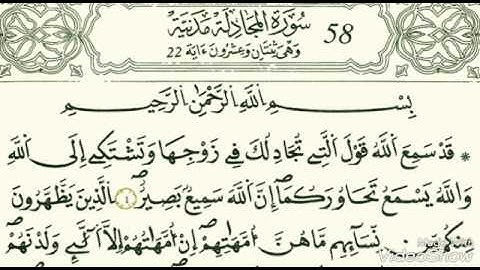 سُورَةُ المُجَادِلَةِ مَدَنِيَّة 58
وَهِيَ ثِنْتَانِ وَعِشْرُونَ ءَايَة 22
بِسْمِ اللَّهِ الرَّحْمَٰنِ الرَّحِيمِ
* قَدْ سَمِعَ اَللَّهُ قَوْلَ اَلتِے تُجَادِلُكَ فِے زَوْجِهَا وَتَشْتَكِےٓ إِلَى اَللَّهِ
وَاللَّهُ يَسْمَعُ تَحَاوُرَكُمَآۖ إِنَّ اَللَّهَ سَمِيعُۢ بَصِيرٌۖ ١ اَلذِينَ يَظَّهَّرُونَ
مِنكُم مِّن نِّسَآئِهِم مَّا هُنَّ أُمَّهَٰتِهِمُۥٓۖ إِنُ امَّهَٰتُهُمُۥٓ إِلَّا اَلَٰٓـِٔے وَلَدْنَهُمْ
VideoShow